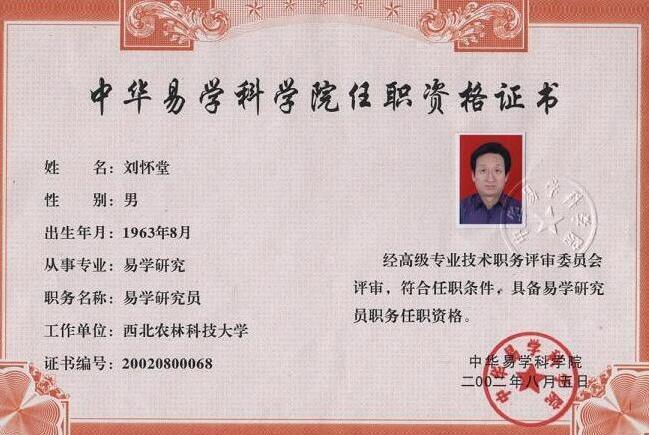 中华易学科学院任职资格证书
姓　　名：刘怀堂
性　　别：男
出生年月：1963年8月
从事专业：易学研究
职务名称：易学研究员
工作单位：西北农林科技大学
证书编号：20020800068
经高级专业技术职务评审委员会
评审，符合任职条件，具备易学研究
员职务任职资格。
中华易学科学院
二00二年八月五日
中华易学科学院
中华易学科学院